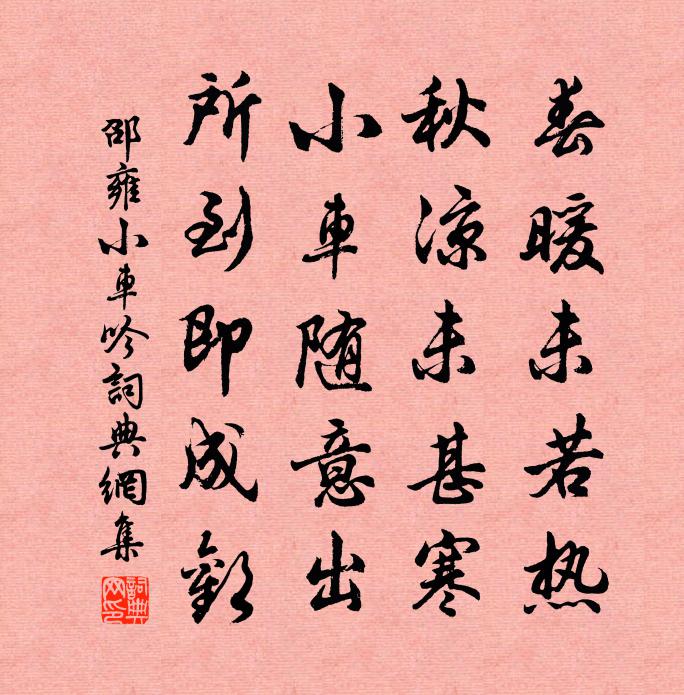 春暖未若热
秋凉未甚寒
小車随意出
所到即成歡
邵雍小車吟詞典網集
詞典網印